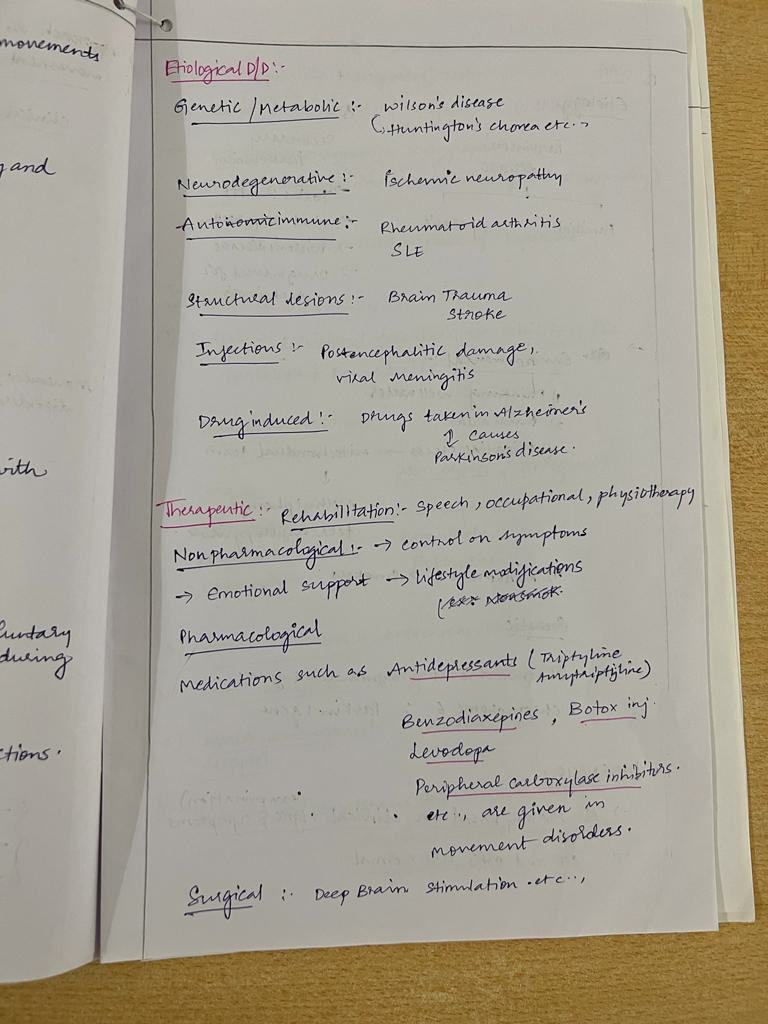 movements
y and
with
luntary
during
ctions.
Etiological D/D:-
Genetic / Metabolic :- wilson's disease
Huntington's chorea etc..,
Neurodegenerative :- Ischemic neuropathy
Autonomicimmune :- Rheumatoid arthritis
SLE
Structural lesions :- Brain Trauma
Stroke
Infections :- Postencephalitic damage,
viral meningitis
Drug induced :- Drugs taken in Alzheimer's
↓ causes
Parkinson's disease.
Therapeutic :- Rehabilitation :- Speech, occupational, physiotherapy
Nonpharmacological :- → control on symptoms
→ Emotional support → lifestyle modifications
Pharmacological
Medications such as Antidepressants (Triptyline
Amytriptyline)
Benzodiaxepines, Botox inj.
Levodopa
Peripheral carboxylase inhibitors.
etc.., are given in
movement disorders.
Surgical :- Deep Brain Stimulation .etc..,